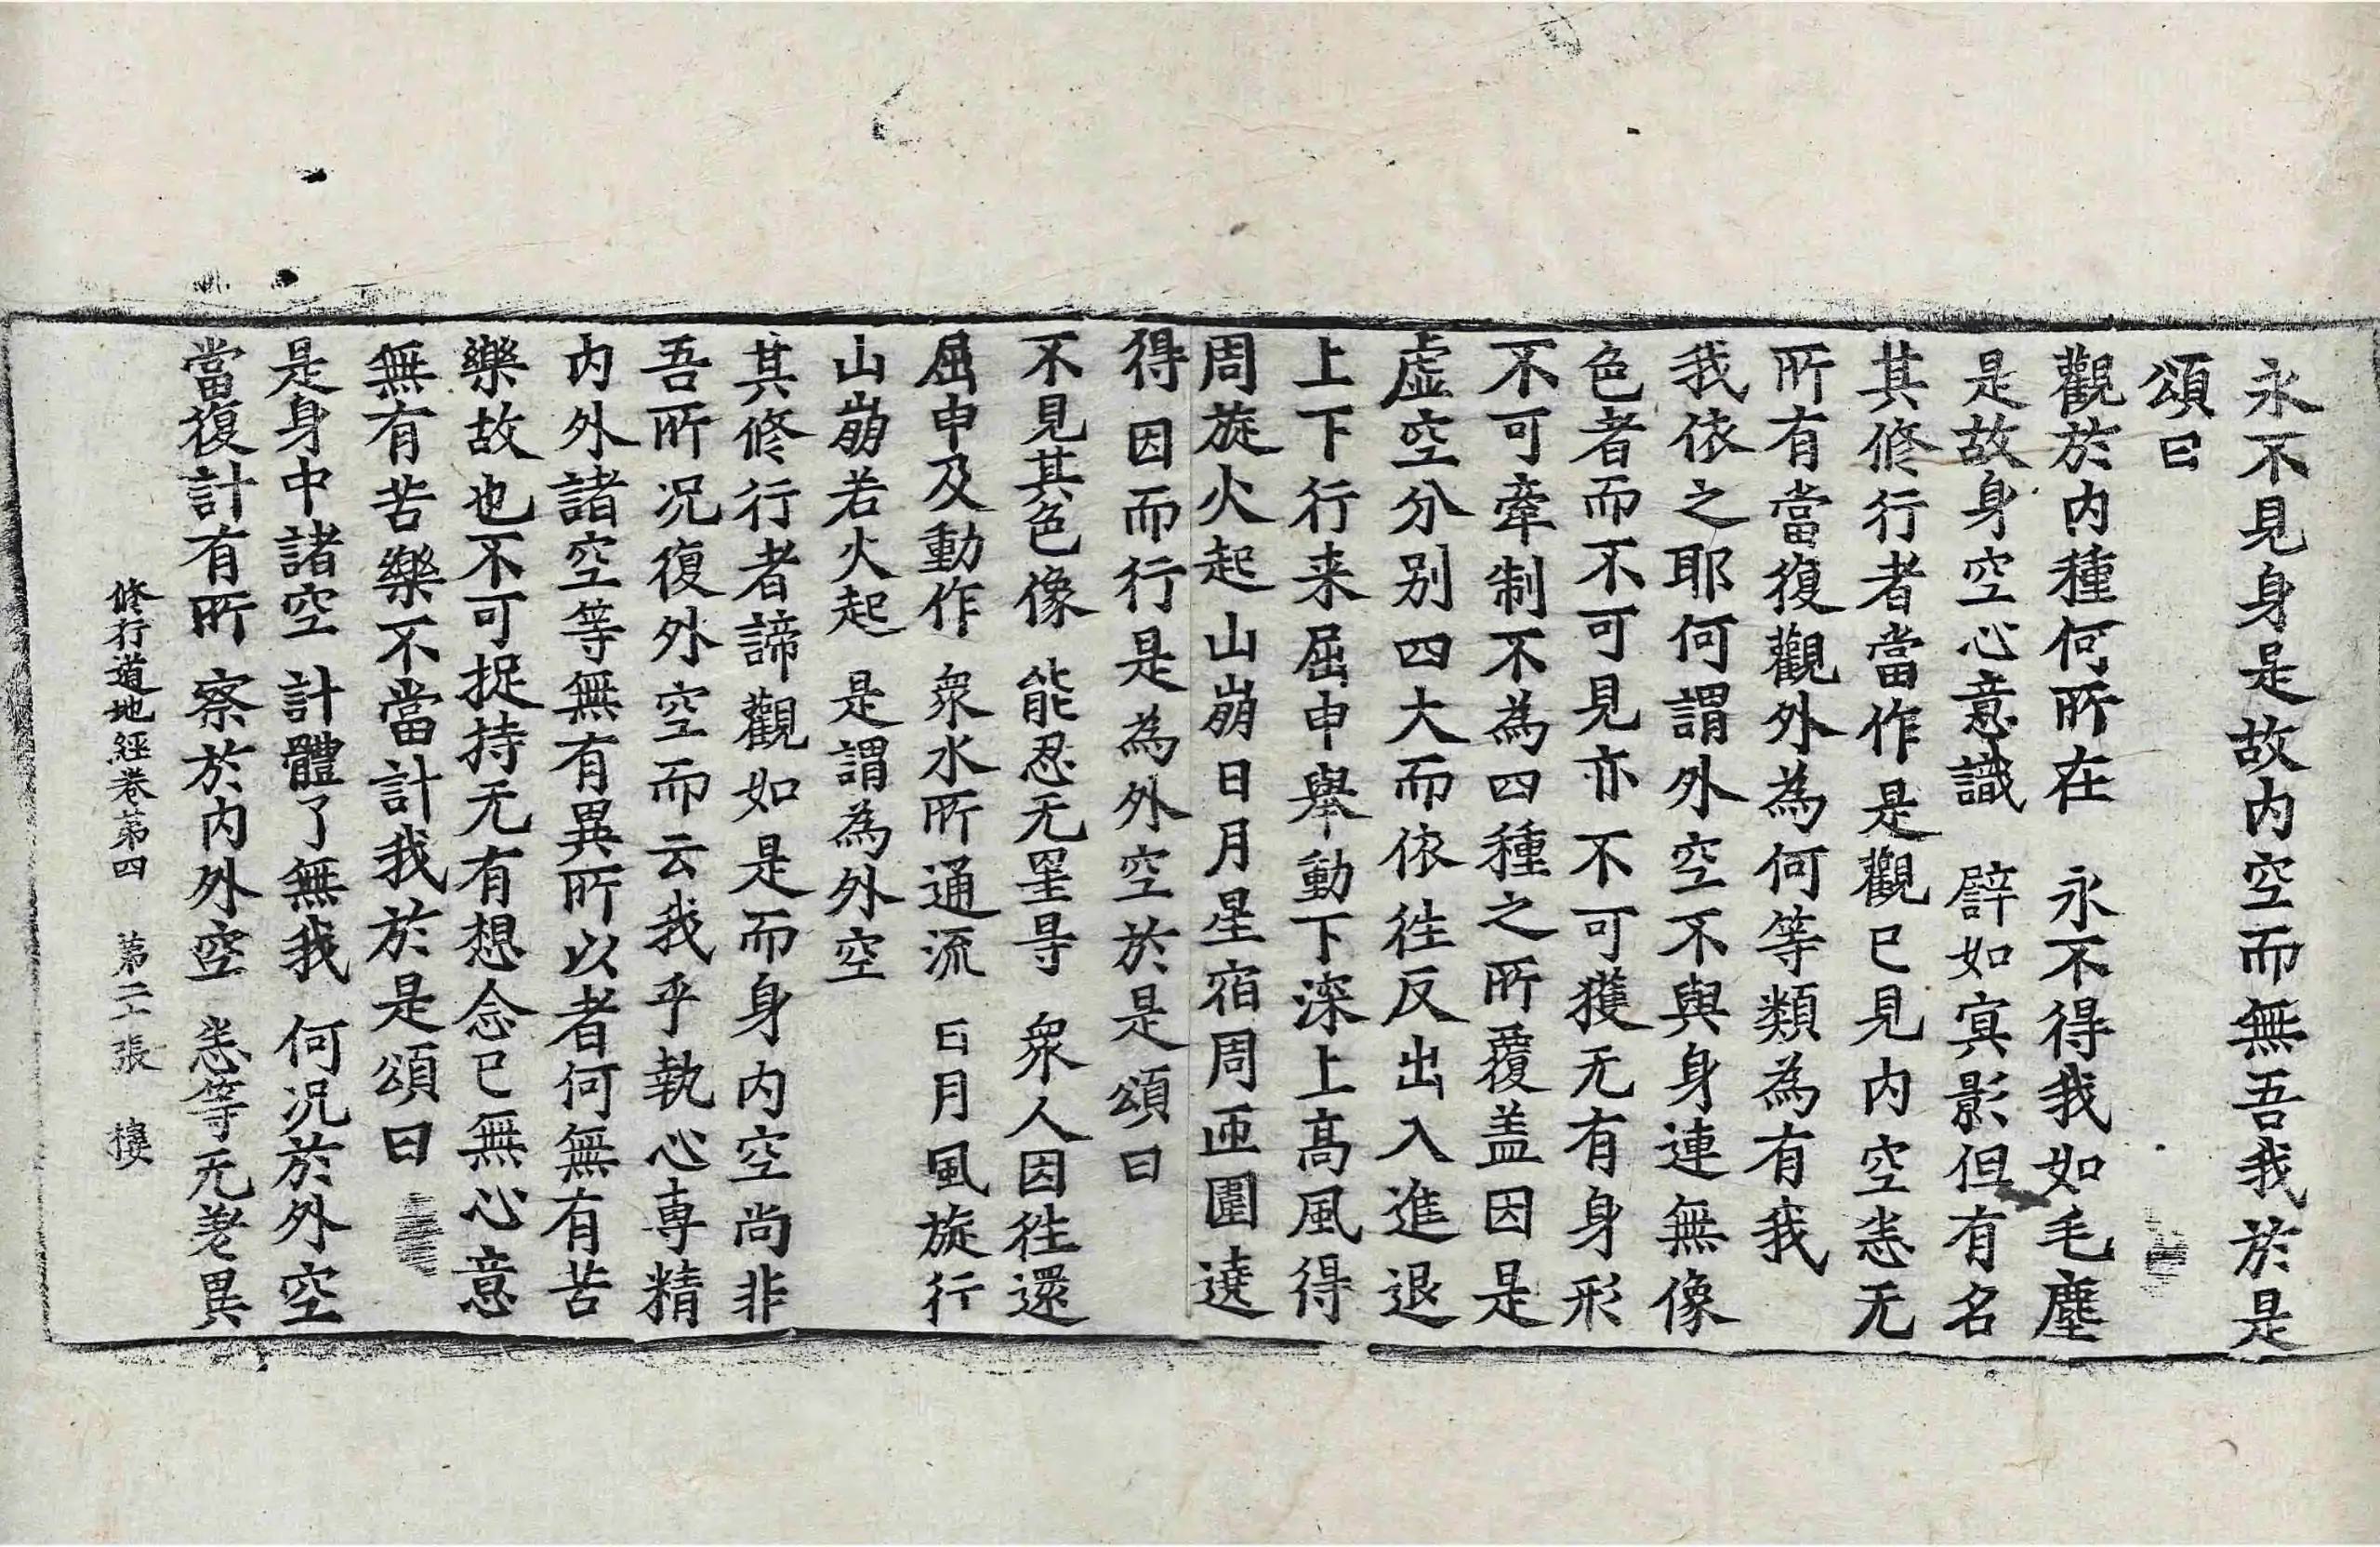 永不見身是故内空而無吾我於是
頌曰
觀於内種何所在　永不得我如毛塵
是故身空心意識　譬如寘影但有名
其修行者當作是觀已見内空恙无
所有當復觀外為何等類為有我
我依之耶何謂外空不與身連無像
色者而不可見亦不可獲无有身形
不可牽制不為四種之所覆盖因是
虛空分别四大而依徃反出入進退
上下行来屈申舉動下深上高風得
周旋火起山崩日月星宿周匝圍遶
得因而行是為外空於是頌曰
不見其色像　能忍无罣㝵　衆人因徃還
屈申及動作　衆水所通流　日月風旋行
山崩若火起　是謂為外空
其修行者諦觀如是而身内空尚非
吾所况復外空而云我乎執心専精
内外諸空等無有異所以者何無有苦
樂故也不可捉持无有想念已無心意
無有苦樂不當計我於是頌曰
是身中諸空　計體了無我　何况於外空
當復計有所　察於内外空　恙等无差異
修行道地經卷第四　第二十張　樓